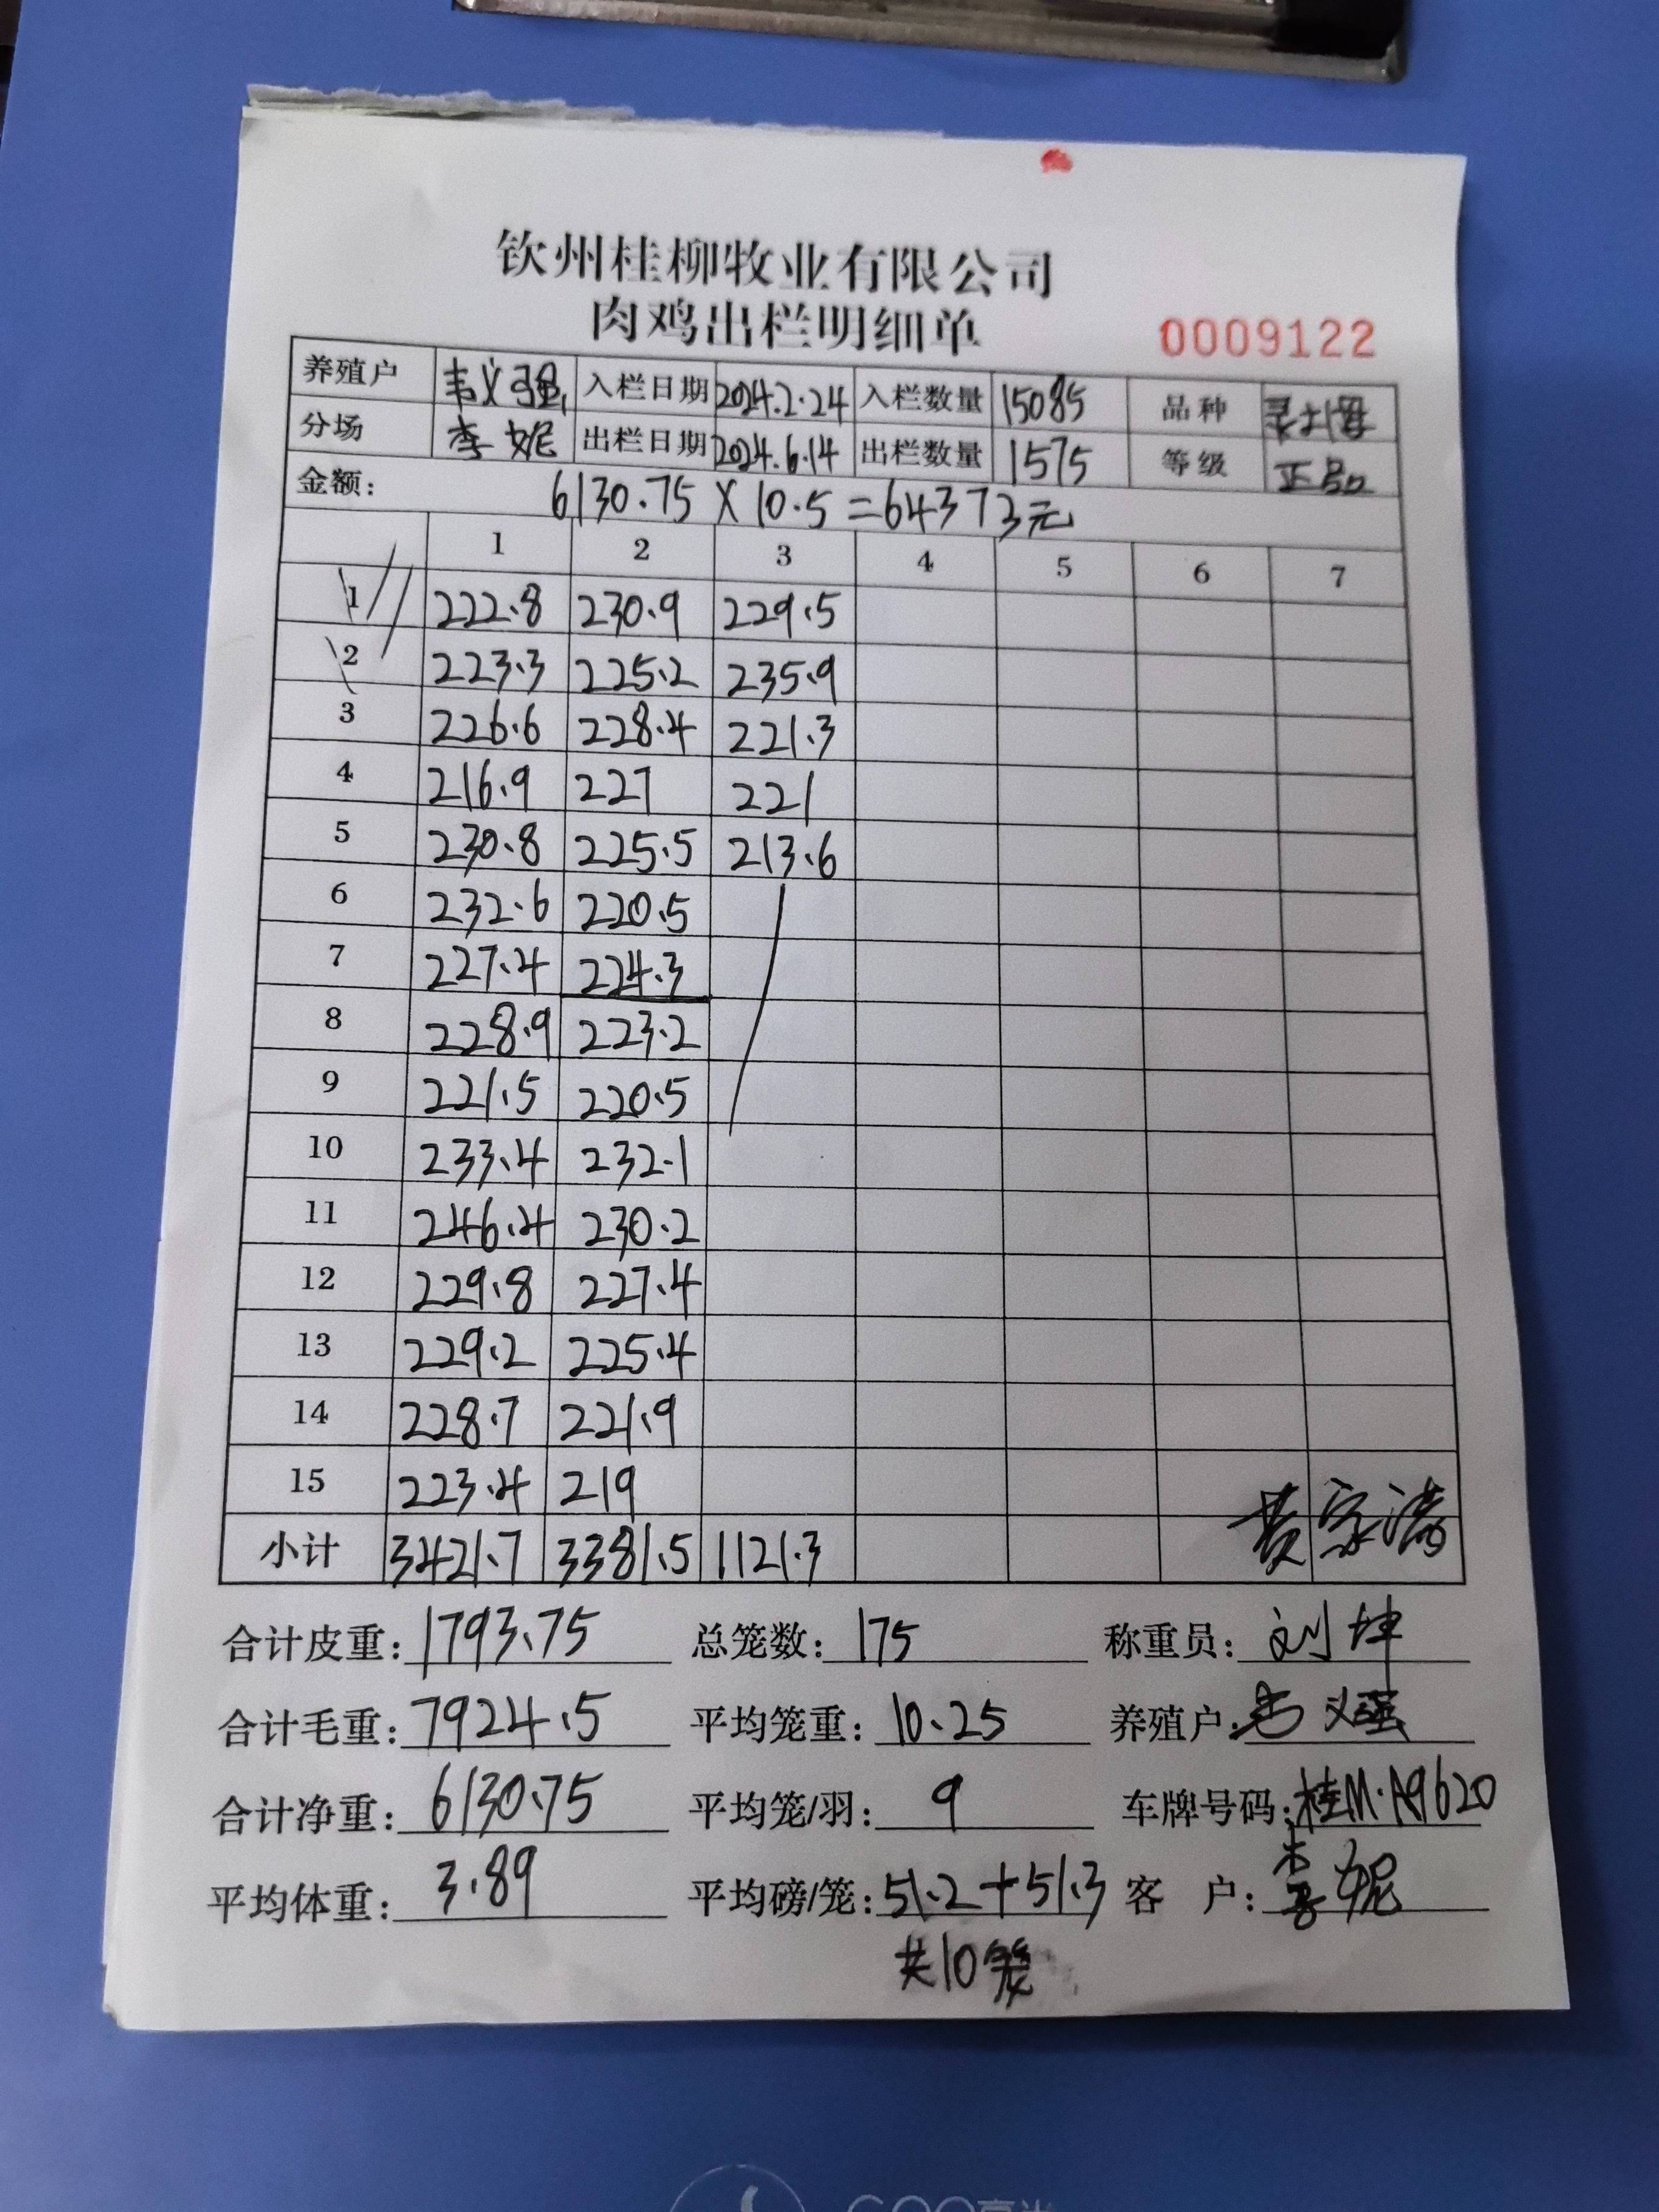 钦州桂柳牧业有限公司
肉鸡出栏明细单
0009122
养殖户 韦义强 入栏日期 2024.2.24 入栏数量 15085 品种
分场 李妮 出栏日期 2024.6.14 出栏数量 1575 等级 正品
金额: 6130.75 X 10.5 =64373元
1 2 3 4 5 6 7
1 222.8 230.9 229.5
2 223.3 225.2 235.9
3 226.6 228.4 221.3
4 216.9 227 221
5 230.8 225.5 213.6
6 232.6 220.5
7 227.4 224.3
8 228.9 223.2
9 221.5 220.5
10 233.4 232.1
11 246.4 230.2
12 229.8 227.4
13 229.2 225.4
14 228.7 221.9
15 223.4 219
小计 3421.7 3381.5 1121.3
合计皮重: 1793.75 总笼数: 175 称重员: 刘坤
合计毛重: 7924.5 平均笼重: 10.25 养殖户: 韦义强
合计净重: 6130.75 平均笼/羽: 9 车牌号码: 桂M·A9620
平均体重: 3.89 平均磅/笼: 51.2+51.3 客 户: 李妮
共10笼